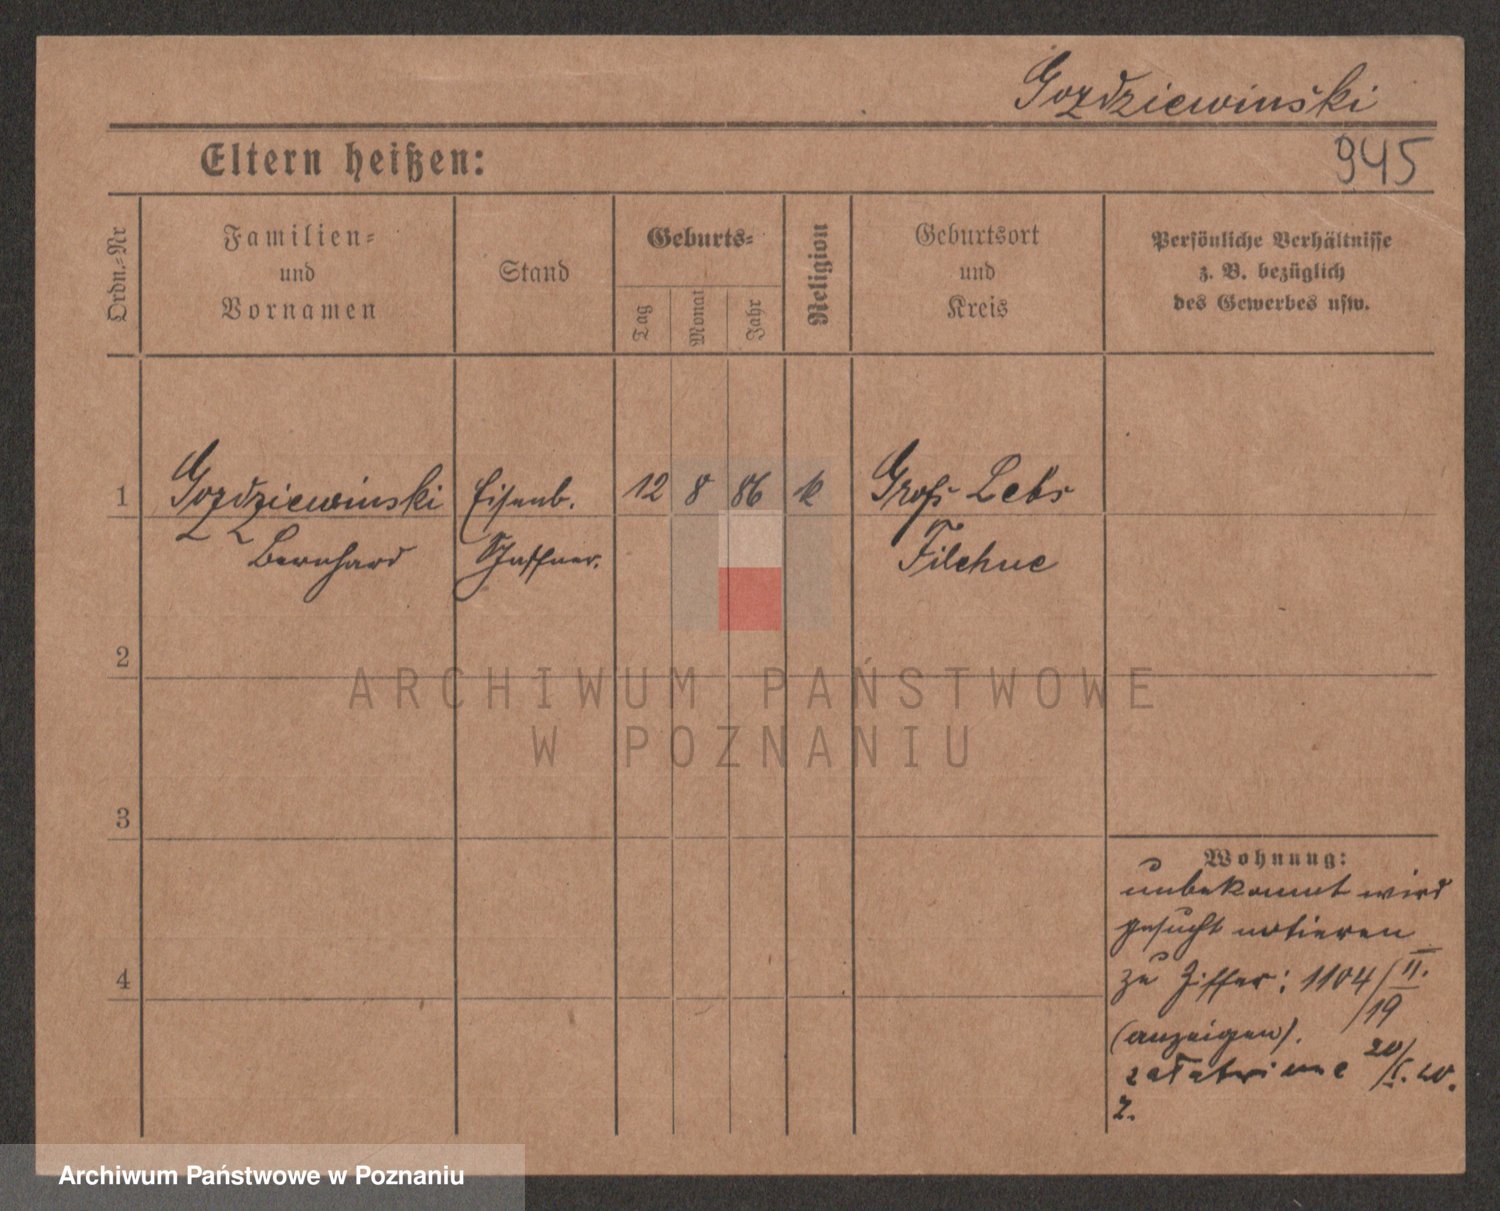 Gozdziewinski
Eltern heißen:
945
Ordn.-Nr
Familien-
und
Vornamen
Stand
Geburts-
Tag
Monat
Jahr
Religion
Geburtsort
und
Kreis
Persönliche Verhältnisse
z. B. bezüglich
des Gewerbes usw.
1
Gozdziewinski
Bernhard
Eisenb.
Schaffner.
12
8
86
k
Groß Lebs
Filehne
2
3
4
Wohnung:
unbekannt wird
gesucht notieren
zu Ziffer: 1104/II.
/19
(anzeigen).
20/I.20.
Z.
ARCHIWUM PAŃSTWOWE
W POZNANIU
Archiwum Państwowe w Poznaniu